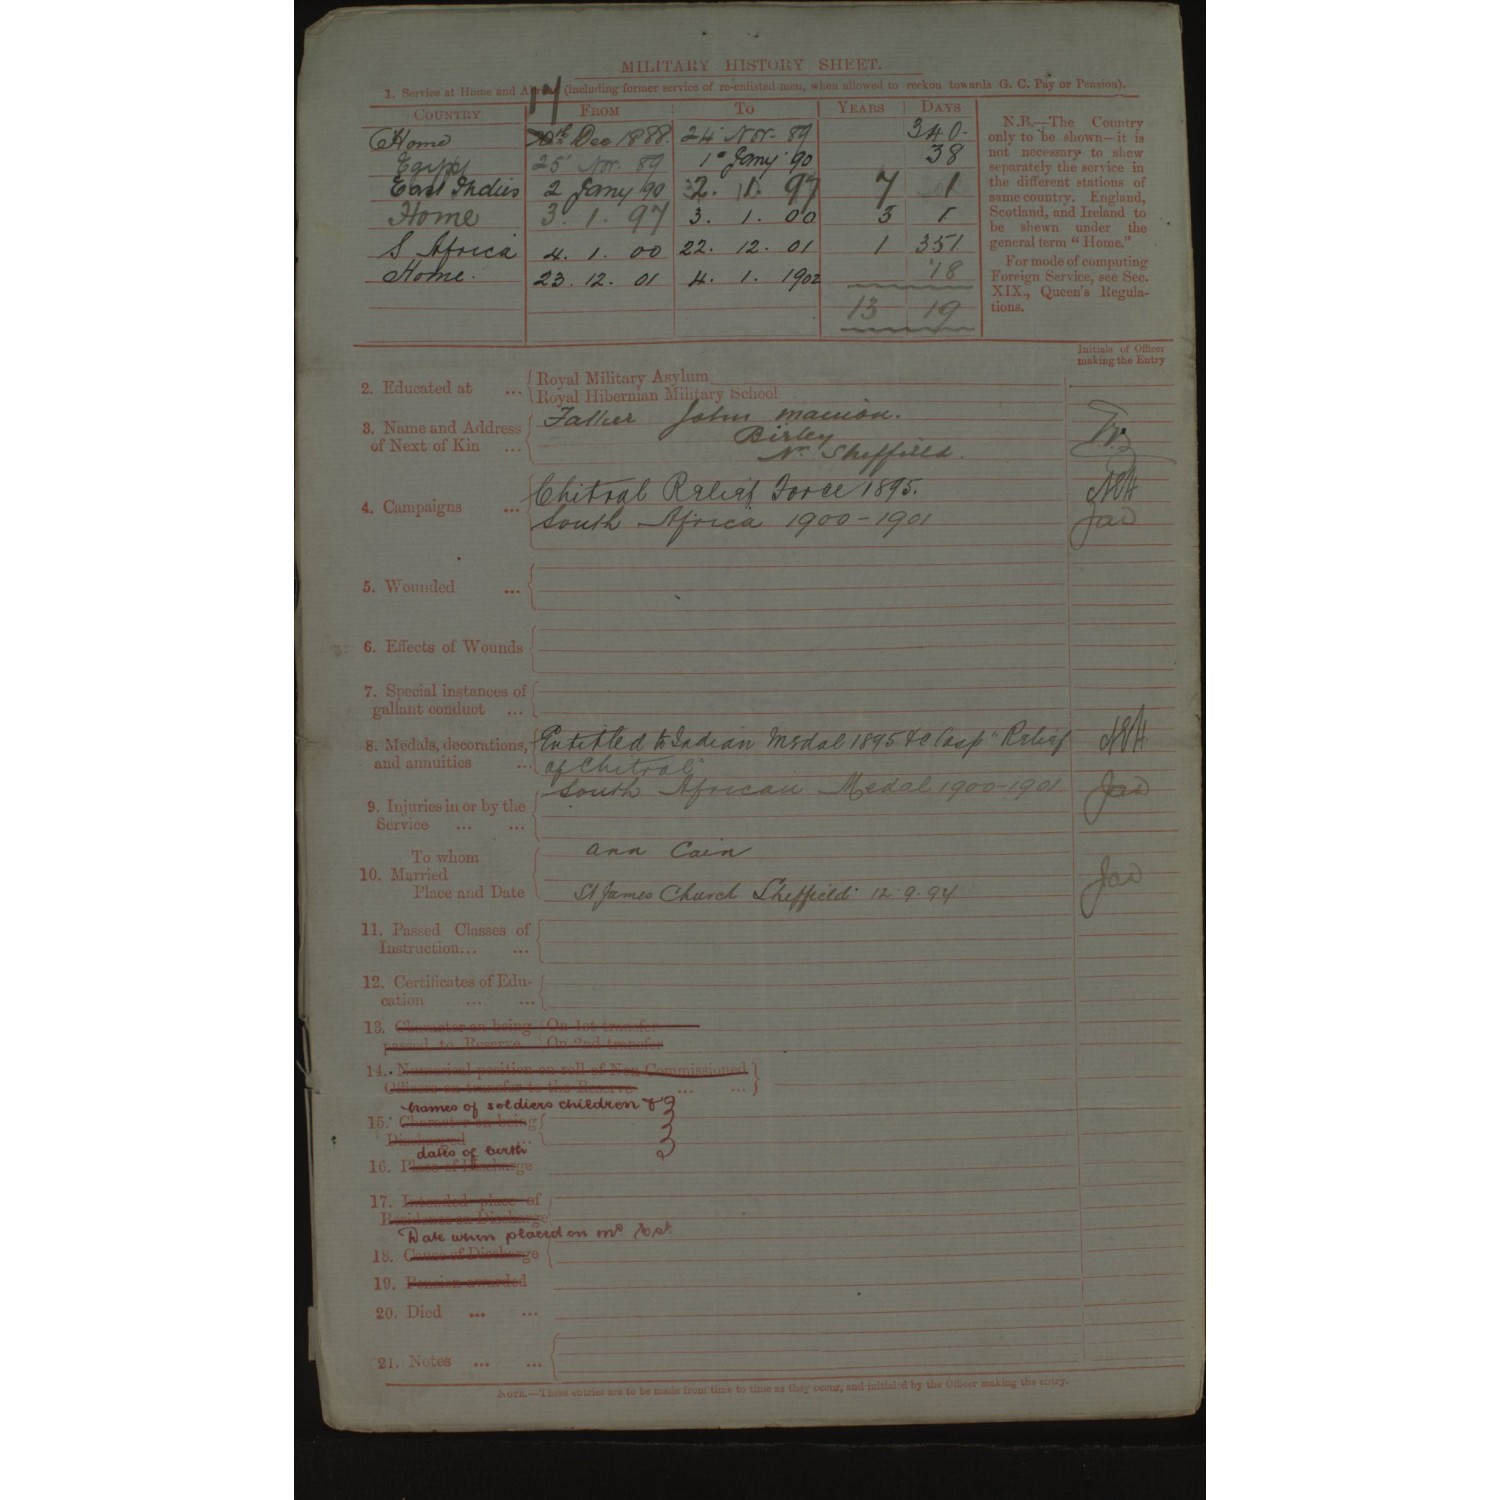 MILITARY HISTORY SHEET.
1. Service at Home and (including former service of re-enlisted men, when allowed to reckon towards G. C. Pay or Pension).
COUNTRY FROM TO YEARS DAYS
Home 17 Dec 1888. 24 Nov. 89 340
Egypt 25 Nov. 89 1 Jany 90 38
East Indies 2 Jany 90 2. 1. 97 7 1
Home 3. 1. 97 3. 1. 00 3 1
S Africa 4. 1. 00 22. 12. 01 1 351
Home. 23. 12. 01 4. 1. 1902 18
13 19
N.B.—The Country
only to be shown—it is
not necessary to shew
separately the service in
the different stations of
same country. England,
Scotland, and Ireland to
be shewn under the
general term "Home."
For mode of computing
Foreign Service, see Sec.
XIX., Queen's Regula-
tions.
Initials of Officer
making the Entry
2. Educated at ... Royal Military Asylum
Royal Hibernian Military School
3. Name and Address
of Next of Kin ...
Father John Manion.
Birley
Nr Sheffield.
4. Campaigns ...
Chitral Relief Force 1895.
South Africa 1900-1901
5. Wounded ...
6. Effects of Wounds
7. Special instances of
gallant conduct ...
8. Medals, decorations,
and annuities ...
Entitled to Indian Medal 1895 & Clasp "Relief
of Chitral"
South African Medal 1900-1901
9. Injuries in or by the
Service ... ...
To whom
10. Married
Place and Date
Ann Cain
St James Church Sheffield 12.9.94
11. Passed Classes of
Instruction... ...
12. Certificates of Edu-
cation ... ...
13. Character on being On 1st transfer
passed to Reserve On 2nd transfer
14. Numerical position on roll of Non Commissioned
Officers on transfer to the Reserve ... ...
names of soldiers children &
15. Character on being
Discharged ...
dates of birth
16. Place of Discharge
17. Intended place of
Residence on Discharge
Date when placed on md Est.
18. Cause of Discharge
19. Pension awarded
20. Died ... ...
21. Notes ... ...
NOTE.—These entries are to be made from time to time as they occur, and initialed by the Officer making the entry.